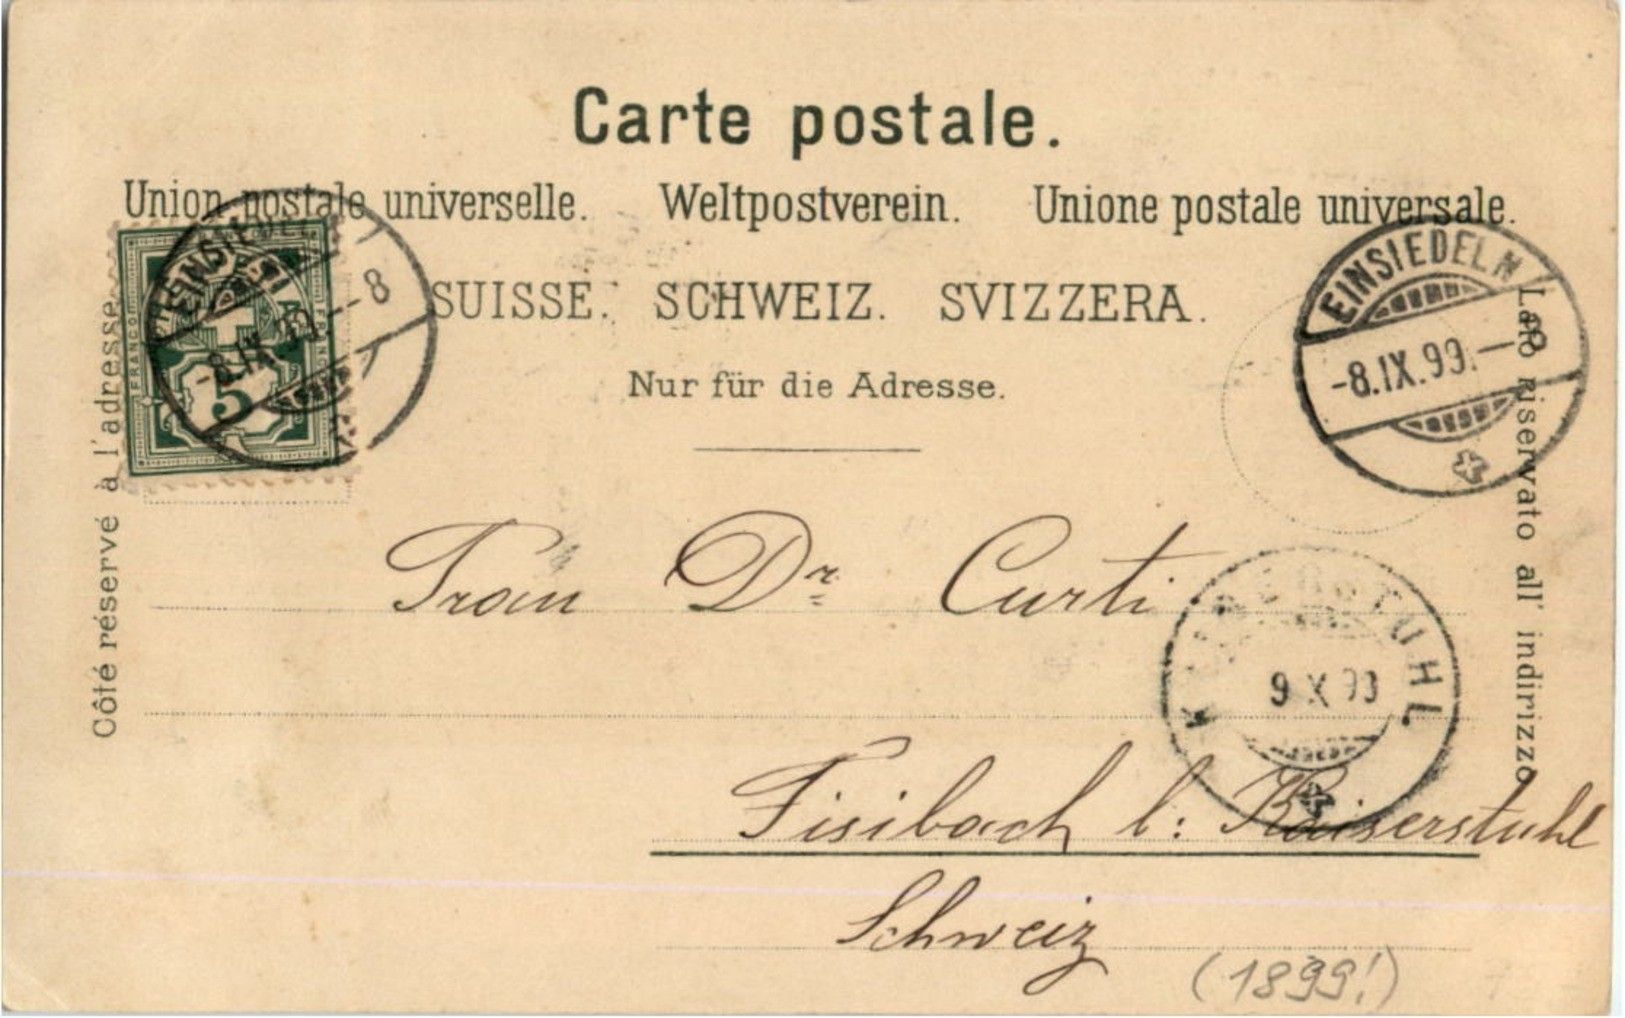 Carte postale.
Union postale universelle. Weltpostverein. Unione postale universale.
SUISSE. SCHWEIZ. SVIZZERA.
Nur für die Adresse.
Côté réservé à l'adresse.
Lato riservato all' indirizzo
FRANCO
5
EINSIEDELN
-8.IX.99.-8
EINSIEDELN
-8.IX.99.-8
KAISERSTUHL
9 X 99
Frau Dr. Curti
Fisibach b: Kaiserstuhl
Schweiz
(1899!)